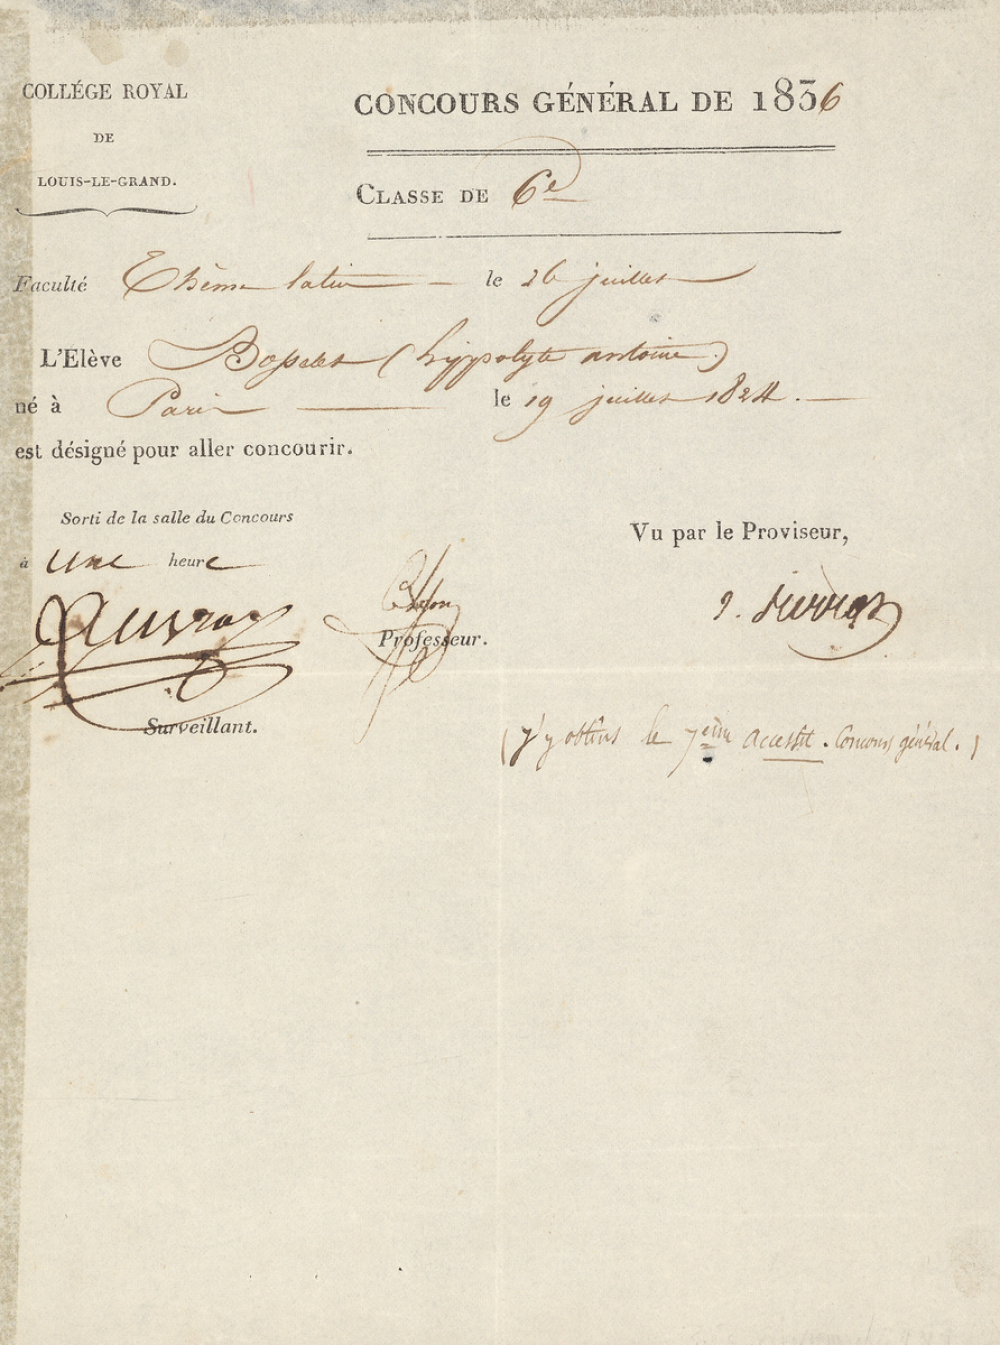 COLLÉGE ROYAL
DE
LOUIS-LE-GRAND.
CONCOURS GÉNÉRAL DE 1836
CLASSE DE 6e
Faculté Thême latin le 26 juillet
L'Elève (hyppolyte antoine)
né à Paris le 19 juillet 1824.
est désigné pour aller concourir.
Sorti de la salle du Concours
à une heure
Vu par le Proviseur,
Auvray
J. Pierrot
Professeur.
Surveillant.
(j'y obtins le 7ème accessit. Concours général.)